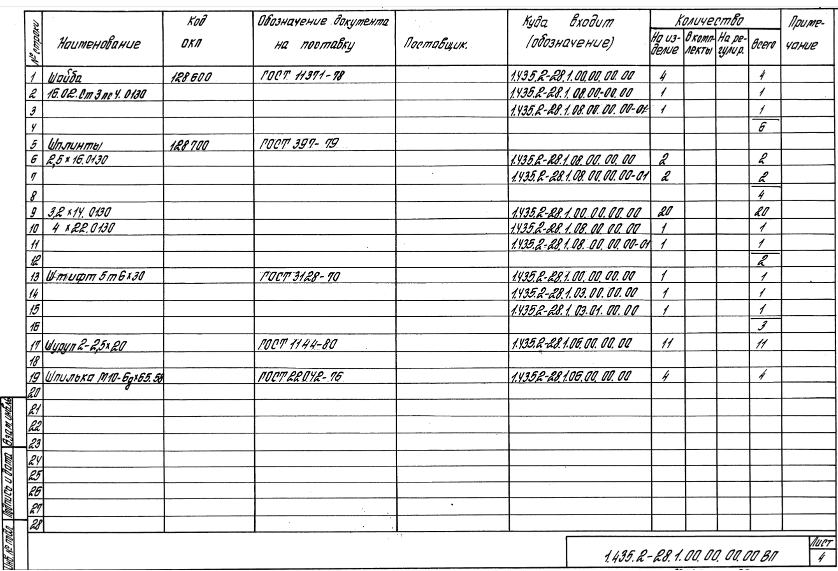 № строки | Наименование | Код ОКП | Обозначение документа на поставку | Поставщик. | Куда входит (обозначение) | Количество | Приме-чание
На из-делие | В комп-лекты | На ре-гулир. | Всего
1 Шайба 128600 ГОСТ 11371-78 1.435.2-28.1.00.00.00.00 4 4
2 16.02.Ст3пс4.0130 1.435.2-28.1.08.00.00.00 1 1
3 1.435.2-28.1.08.00.00.00-01 1 1
4 6
5 Шплинты 128700 ГОСТ 397-79
6 2,5×16.0130 1.435.2-28.1.08.00.00.00 2 2
7 1.435.2-28.1.08.00.00.00-01 2 2
8 4
9 3,2×14.0130 1.435.2-28.1.00.00.00.00 20 20
10 4×22.0130 1.435.2-28.1.08.00.00.00 1 1
11 1.435.2-28.1.08.00.00.00-01 1 1
12 2
13 Штифт 5m6×30 ГОСТ 3128-70 1.435.2-28.1.00.00.00.00 1 1
14 1.435.2-28.1.03.00.00.00 1 1
15 1.435.2-28.1.03.01.00.00 1 1
16 3
17 Шуруп 2-2,5×20 ГОСТ 1144-80 1.435.2-28.1.06.00.00.00 11 11
18
19 Шпилька М10-6g×65.58 ГОСТ 22042-76 1.435.2-28.1.06.00.00.00 4 4
20
21
22
23
24
25
26
27
28
Взам.инв.№
Подпись и дата
Инв.№ подл.
1.435.2-28.1.00.00.00.00 ВП
Лист
4